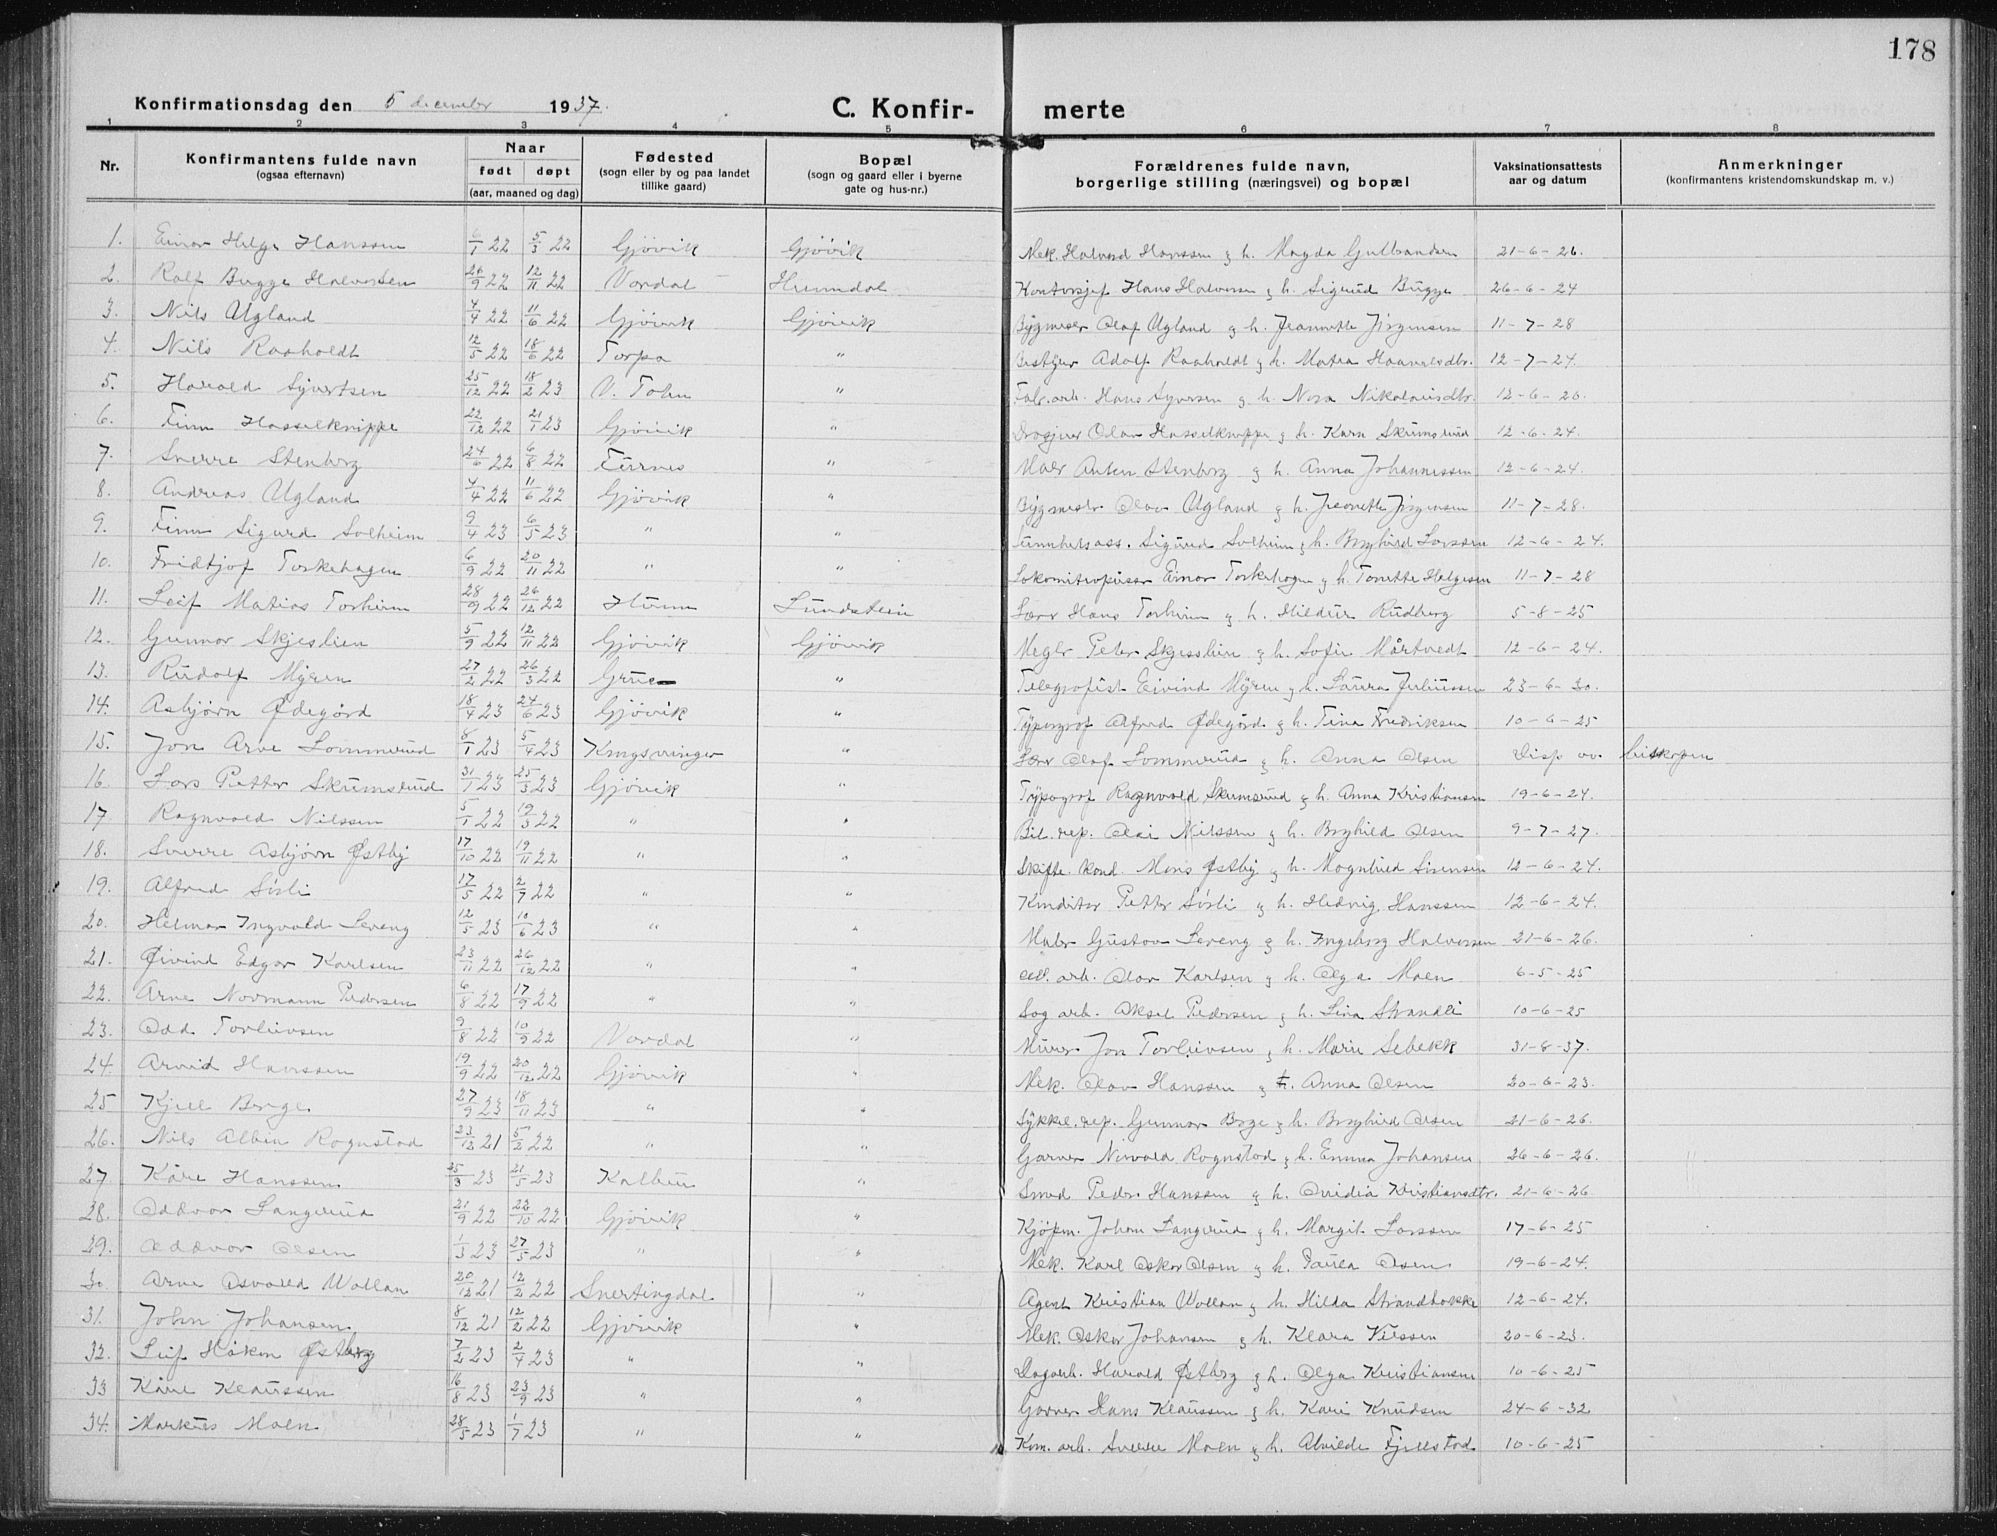 178
Konfirmationsdag den 5 december 1937.
C. Konfir- merte
1 2 3 4 5 6 7 8
Nr. Konfirmantens fulde navn (ogsaa efternavn) Naar født døpt (aar, maaned og dag) Fødested (sogn eller by og paa landet tillike gaard) Bopæl (sogn og gaard eller i byerne gate og hus-nr.) Forældrenes fulde navn, borgerlige stilling (næringsvei) og bopæl Vaksinationsattests aar og datum Anmerkninger (konfirmantens kristendomskundskap m. v.)
1. Einar Helge Hanssen 6/1 22 5/3 22 Gjøvik Gjøvik Mek. Halvard Hanssen g h. Magda Gulbrandsen 21-6-26.
2. Rolf Bugge Halvorsen 26/9 22 12/11 22 Vardal Hunndal Kontorsjef Hans Halvorsen g h. Sigrud Bugge 26-6-24
3. Nils Ugland 4/4 22 11/6 22 Gjøvik Gjøvik Bygmestr Olaf Ugland g h. Jeannette Jørgensen 11-7-28
4. Nils Raaholdt 12/5 22 18/6 22 Torpa " Bestyrer Adolf Raaholdt g h. Matea Haavelsdtr. 12-7-24.
5. Harald Syvertsen 25/12 22 18/2 23 V. Toten " Fabr. arb. Hans Syversen g h. Nora Nikolaisdtr. 12-6-26.
6. Finn Hasselknippe 22/12 22 21/1 23 Gjøvik " Drosjeier Olav Hasselknippe g h. Karn Skumsrud 12-6-24.
7. Sverre Stenberg 24/6 22 6/8 22 Furnes " Maler Anton Stenberg g h. Anna Johannessen 12-6-24.
8. Andreas Ugland 4/4 22 11/6 22 Gjøvik " Bygmestr. Olav Ugland g h. Jeanette Jørgensen 11-7-28.
9. Finn Sigurd Solheim 9/4 23 6/5 23 " " Sigurd Solheim g h. Borghild Larssen 12-6-24.
10. Fridtjof Torkehagen 6/9 22 20/11 22 " " Lokomitivpusser Einar Torkehagen g h. Tonette Helgesen 11-7-28
11. Leif Matias Torheim 28/9 22 26/12 22 Hunn Sundstein Lærer Hans Torheim g h. Hildur Rudberg 5-8-25
12. Gunnar Skjeslien 5/9 22 12/11 22 Gjøvik Gjøvik Megler Peter Skjesslien g h. Sofie Mårtvedt 12-6-24.
13. Rudolf Myren 27/2 22 26/3 22 Grue " Telegrafist Eivind Myren g h. Laura Juliussen 23-6-30.
14. Asbjørn Ødegård 18/4 23 24/6 23 Gjøvik " Typograf Alfred Ødegård g h. Tina Fredriksen 10-6-25
15. Jon Arve Sommerud 8/1 23 5/4 23 Kongsvinger " Lærer Olaf Sommerud g h. Anna Olsen Disp av biskopen
16. Lars Petter Skumsrud 31/1 23 25/3 23 Gjøvik " Typograf Ragnvald Skumsrud g h. Anna Kristiansen 19-6-24.
17 Ragnvald Nilssen 5/1 22 19/3 22 " " Bil. rep. Olai Nilssen g h. Borghild Olsen 9-7-27.
18. Sverre Asbjørn Østby 17/10 22 19/11 22 " " Skifte. kond. Mons Østby g h. Magnhild Sørensen 12-6-24.
19. Alfred Sørli 17/5 22 2/7 22 " " Konditor Petter Sørli g h. Hedvig Hanssen 12-6-24.
20. Helmar Ingvald Sereng 12/5 23 10/6 23 " " Maler Gustav Sereng g h. Ingeborg Halvorsen 21-6-26.
21. Øivind Edgar Karlsen 23/11 22 26/12 22 " " arb. Olav Karlsen g h. Olga Moen 6-5-25
22. Arne Normann Pedersen 6/8 22 17/9 22 " " Sag arb. Aksel Pedersen g h. Lina Strandli 10-6-25
23. Odd Torleivsen 9/8 22 10/9 22 Vardal " Murer Jon Torleivsen g h. Marie Sebekk 31-8-37.
24. Arvid Hanssen 19/9 22 20/12 22 Gjøvik " Mek. Olav Hanssen g h. Anna Olsen 20-6-23.
25 Kjell Berge 27/9 23 18/11 23 " " Sykkel. rep. Gunnar Berge g h. Borghild Olsen 21-6-26.
26. Nils Albin Rognstad 23/12 21 5/2 22 " " Garver Nirvald Rognstad g h. Emma Johansen 26-6-26.
27 Kåre Hanssen 25/3 23 21/5 23 Kolbu " Smed Peder Hanssen g h. Ovidia Kristiansdtr. 21-6-26
28. Oddvar Langerud 21/9 22 22/10 22 Gjøvik " Kjøpm. Johan Langerud g h. Margit Larssen 17-6-25
29. Oddvar Olsen 1/3 23 27/5 23 " " Mek. Karl Oskar Olsen g h. Paula Olsen 19-6-24.
30. Arne Osvald Wollan 20/12 21 12/2 22 Snertingdal " Agent Kristian Wollan g h. Hilda Strandbakke 12-6-24.
31. John Johansen 8/12 21 12/2 22 Gjøvik " Mek. Oskar Johansen g h. Klara Nilssen 20-6-23.
32. Leif Håkon Østberg 7/2 23 2/4 23 " " Dagarb. Harald Østberg g h. Olga Kristiansen 10-6-25
33 Kåre Klaussen 16/8 23 23/9 23 " " Garver Hans Klaussen g h. Kari Knudsen 24-6-32.
34. Markus Moen 28/5 23 1/7 23 " " Kom. arb. Sverre Moen g h. Alvilde Fjellstad 10-6-25